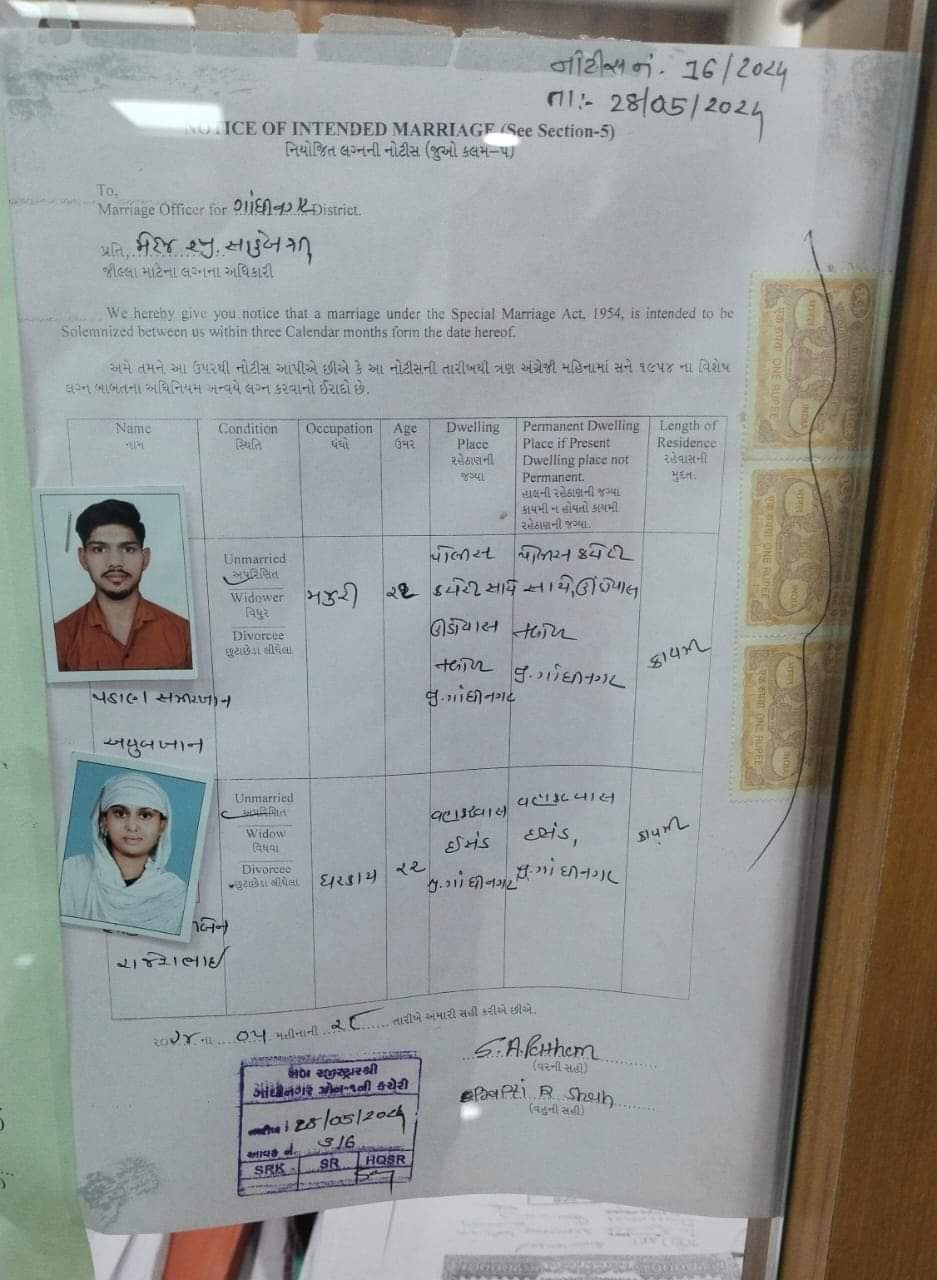 નોટીસ નં. 16/2024
તા:- 28/05/2024
NOTICE OF INTENDED MARRIAGE (See Section-5)
નિયોજિત લગ્નની નોટીસ (જુઓ કલમ-૫)
To,
Marriage Officer for ગાંધીનગર District.
પ્રતિ,
જીલ્લા માટેના લગ્નના અધિકારી
We hereby give you notice that a marriage under the Special Marriage Act, 1954, is intended to be
Solemnized between us within three Calendar months form the date hereof.
અમે તમને આ ઉપરથી નોટીસ આપીએ છીએ કે આ નોટીસની તારીખથી ત્રણ અંગ્રેજી મહિનામાં સને ૧૯૫૪ ના વિશેષ
લગ્ન બાબતના અધિનિયમ અન્વયે લગ્ન કરવાનો ઈરાદો છે.
Name
નામ
Condition
સ્થિતિ
Occupation
ધંધો
Age
ઉંમર
Dwelling
Place
રહેઠાણની
જગ્યા
Permanent Dwelling
Place if Present
Dwelling place not
Permanent.
હાલની રહેઠાણની જગ્યા
કાયમી ન હોયતો કાયમી
રહેઠાણની જગ્યા.
Length of
Residence
રહેવાસની
મુદત.
પઠાણ સમીરખાન
અયુબખાન
Unmarried
અપરિણિત
Widower
વિધુર
Divorcee
છુટાછેડા લીધેલા
મજુરી
૨૨
પોલીસ
કચેરી સામે
નભોઈ
જી.ગાંધીનગર
પોલીસ કચેરી
સામે,
નભોઈ
જી.ગાંધીનગર
કાયમી
બેન
રાજેશભાઈ
Unmarried
અપરિણિત
Widow
વિધવા
Divorcee
છુટાછેડા લીધેલા
ઘરકામ
૨૨
વણકરવાસ
ઈસંડ
જી.ગાંધીનગર
વણકરવાસ
ઇસંડ,
જી.ગાંધીનગર
કાયમી
૨૦૨૪ ના ૦૫ મહીનાની ૨૮ તારીખે અમારી સહી કરીએ છીએ.
S.A.Patthan
(વરની સહી)
R Sheth
(વહુની સહી)
સબ રજીસ્ટ્રારશ્રી
ગાંધીનગર ઝોન-૧ની કચેરી
તારીખ : 28/05/2024
આવક નં. 316
SRK SR HQSR
ONE RUPEE
INDIA
ONE RUPEE
INDIA
ONE RUPEE
INDIA